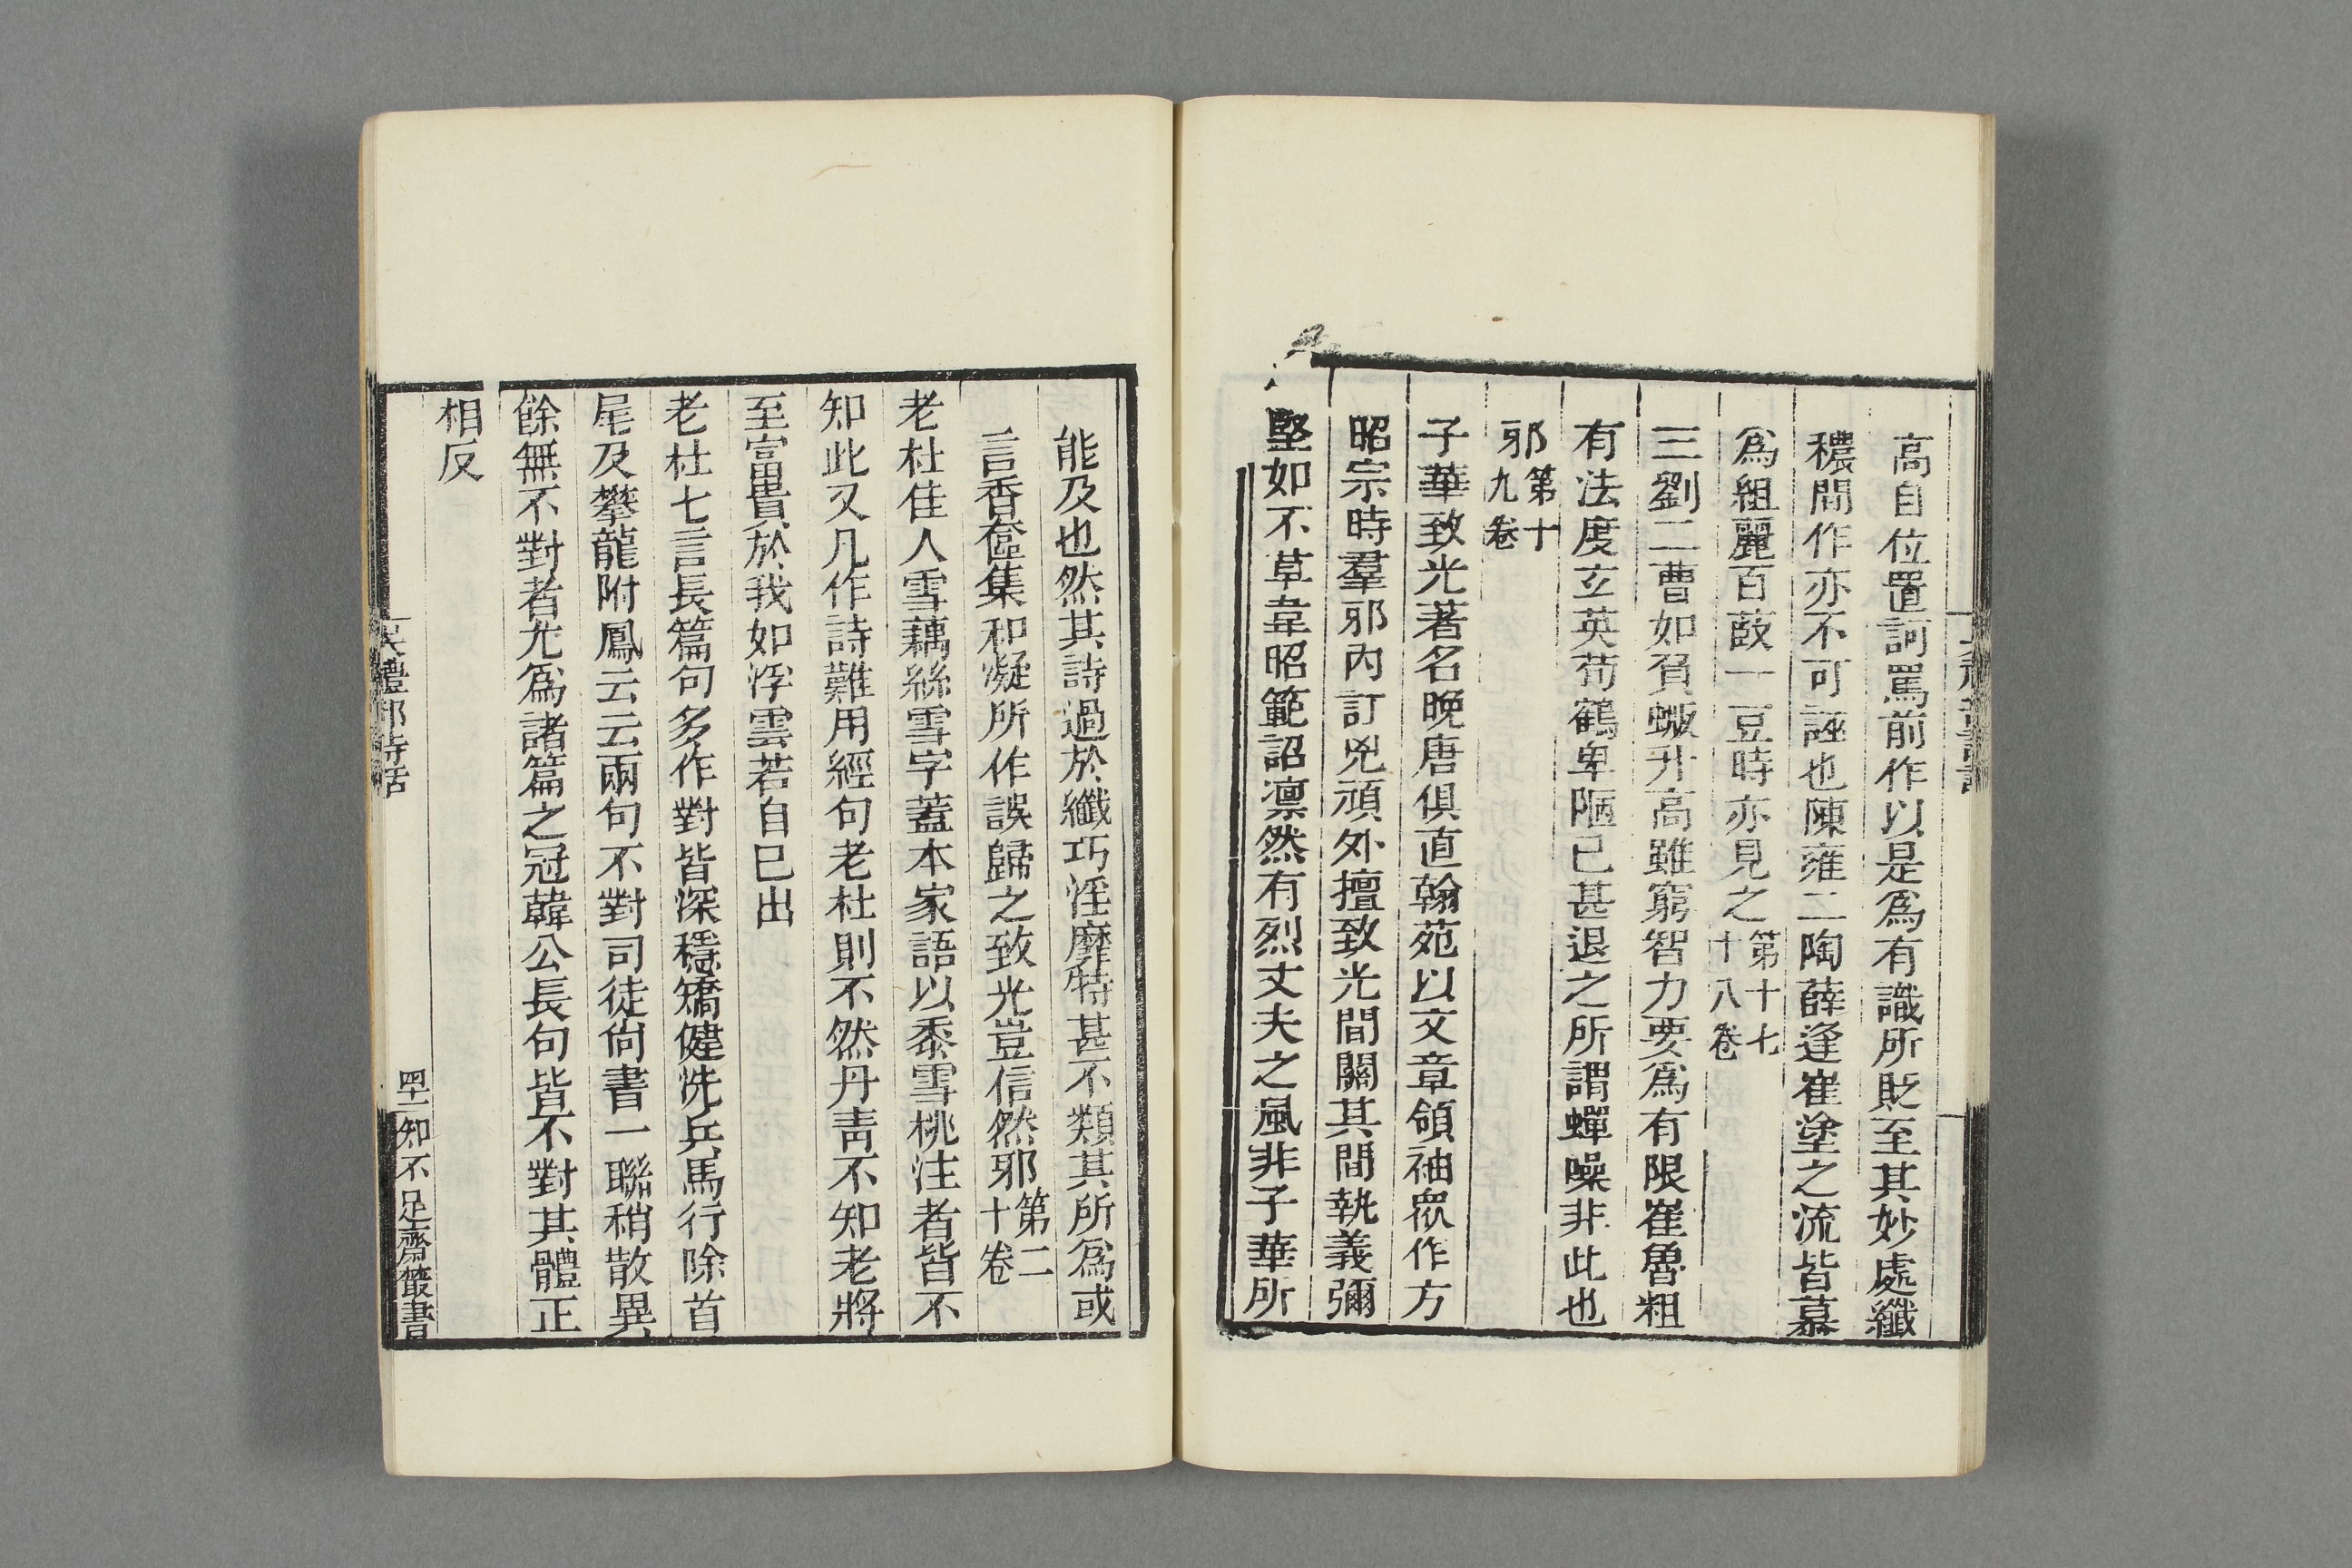 高自位置訶罵前作以是爲有識所貶至其妙處纖
穠間作亦不可誣也陳雍二陶薛逢崔塗之流皆慕
爲組麗百葮一豆時亦見之第十七
十八卷
三劉二曹如負蝂升高雖窮智力要爲有限崔魯粗
有法度玄英荀鶴卑陋已甚退之所謂蟬噪非此也
邪第十
九卷
子華致光著名晚唐俱直翰苑以文章領袖衆作方
昭宗時羣邪內訌兇頑外擅致光間關其間執義彌
堅如不草韋昭範詔凜然有烈丈夫之風非子華所
能及也然其詩過於纖巧淫靡特甚不類其所爲或
言香奩集和凝所作誤歸之致光豈信然邪第二
十卷
老杜佳人雪藕絲雪字蓋本家語以黍雪桃注者皆不
知此又凡作詩難用經句老杜則不然丹靑不知老將
至富貴於我如浮雲若自已出
老杜七言長篇句多作對皆深穩矯健洗兵馬行除首
尾及攀龍附鳳云云兩句不對司徒尙書一聯稍散異
餘無不對者尤爲諸篇之冠韓公長句皆不對其體正
相反
吳禮部詩話
四十一
知不足齋叢書